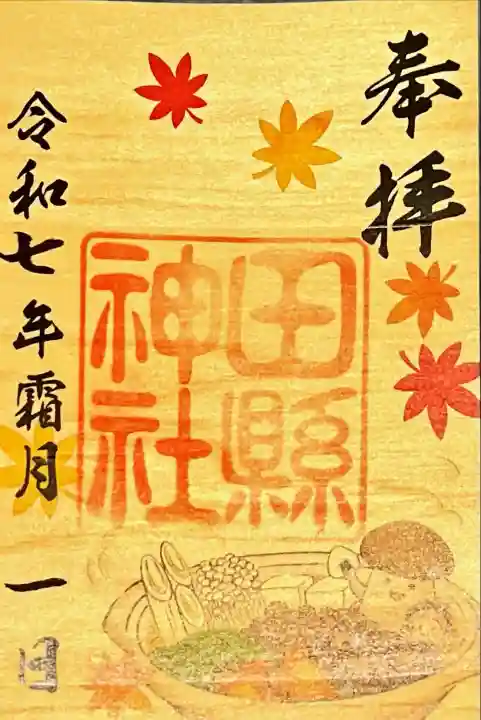 奉拝
田縣
神社
令和七年霜月一日